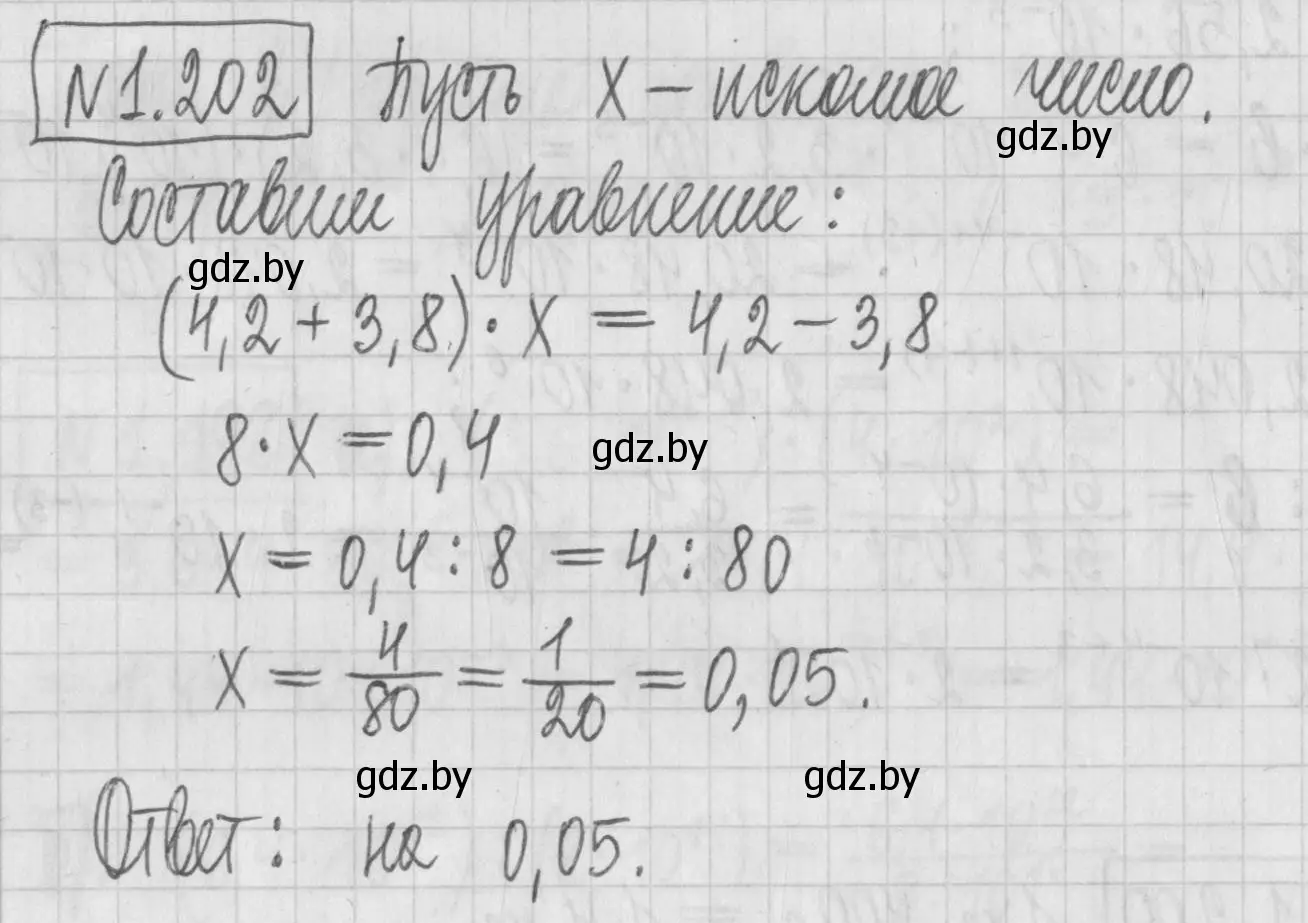 N 1.202 Пусть x – искомое число.
gdz.by
Составим уравнение:
gdz.by
(4,2 + 3,8) · x = 4,2 – 3,8
8 · x = 0,4
gdz.by
x = 0,4 : 8 = 4 : 80
x = 4/80 = 1/20 = 0,05.
gdz.by gdz.by
Ответ: на 0,05.